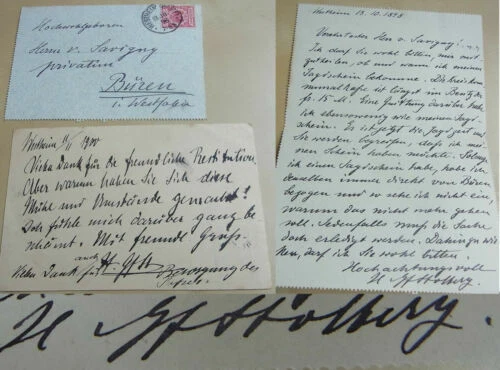 Hochwohlgeboren
Herrn v. Savigny
privatim
Büren
i. Westfalen
Westheim 11/11 1900
Vielen Dank für die freundliche Restitution.
Aber warum haben Sie sich diese
Mühe und Umstände gemacht?
Ich fühle mich darüber ganz be
schämt. Mit freundl. Gruß
auch
Vielen Dank für Besorgung des
Westheim 13. 10. 1898
Verehrtester Herr v. Savigny!
Ich darf Sie wohl bitten, mir mit
zutheilen, ob und wann ich meinen
Jagdschein bekomme. Die Kreiskom
munalkasse ist längst im Besitz der
15 M. Eine Quittung darüber habe
ich ebensowenig wie meinen Jagd-
schein. Es ist jetzt die Jagdzeit und
Sie werden begreifen, daß ich mei
nen Schein haben möchte. Solange
ich einen Jagdschein habe, habe ich
denselben immer direkt von Büren
bezogen und sehe ich nicht ein,
warum das nicht mehr gehen
soll. Jedenfalls muß die Sache
doch erledigt werden. Dahin zu wir
ken, darf ich Sie wohl bitten.
Hochachtungsvoll
H Gf Stolberg.
H Gf Stolberg.